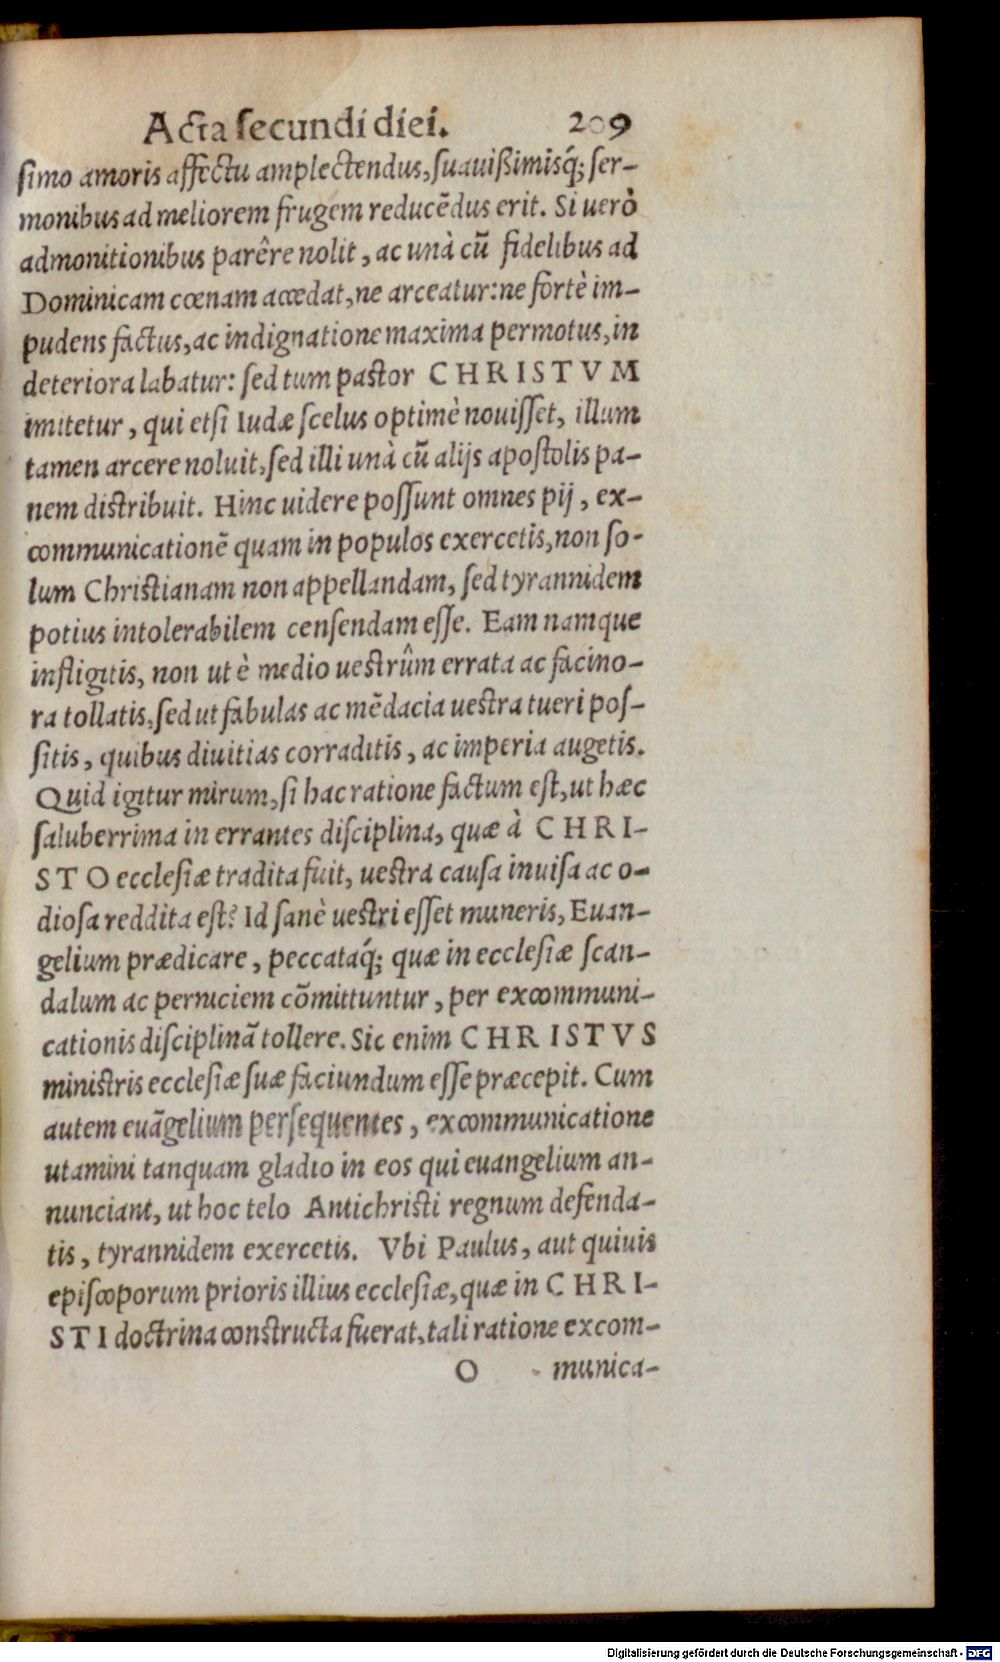 Acta ſecundi diei. 209
ſimo amoris affectu amplectendus, ſuauißimisq́; ſer-
monibus ad meliorem frugem reducẽdus erit. Si uerò
admonitionibus parêre nolit, ac unà cũ fidelibus ad
Dominicam cœnam accedat, ne arceatur: ne fortè im-
pudens factus, ac indignatione maxima permotus, in
deteriora labatur: ſed tum paſtor CHRISTVM
imitetur, qui etſi Iudæ ſcelus optimè nouiſſet, illum
tamen arcere noluit, ſed illi unà cũ alijs apoſtolis pa-
nem diſtribuit. Hinc uidere poſſunt omnes pij, ex-
communicationẽ quam in populos exercetis, non ſo-
lum Chriſtianam non appellandam, ſed tyrannidem
potius intolerabilem cenſendam eſſe. Eam namque
infligitis, non ut è medio ueſtrûm errata ac facino-
ra tollatis, ſed ut fabulas ac mẽdacia ueſtra tueri poſ-
ſitis, quibus diuitias corraditis, ac imperia augetis.
Quid igitur mirum, ſi hac ratione factum eſt, ut hæc
ſaluberrima in errantes diſciplina, quæ à CHRI-
STO eccleſiæ tradita fuit, ueſtra cauſa inuiſa ac o-
dioſa reddita eſt? Id ſanè ueſtri eſſet muneris, Euan-
gelium prædicare, peccataq́; quæ in eccleſiæ ſcan-
dalum ac perniciem cõmittuntur, per excommuni-
cationis diſciplinã tollere. Sic enim CHRISTVS
miniſtris eccleſiæ ſuæ faciundum eſſe præcepit. Cum
autem euãgelium perſequentes, excommunicatione
utamini tanquam gladio in eos qui euangelium an-
nunciant, ut hoc telo Antichriſti regnum defenda-
tis, tyrannidem exercetis. Vbi Paulus, aut quiuis
epiſcoporum prioris illius eccleſiæ, quæ in CHRI-
STI doctrina conſtructa fuerat, tali ratione excom-
O munica-
Digitalisierung gefördert durch die Deutsche Forschungsgemeinschaft - DFG